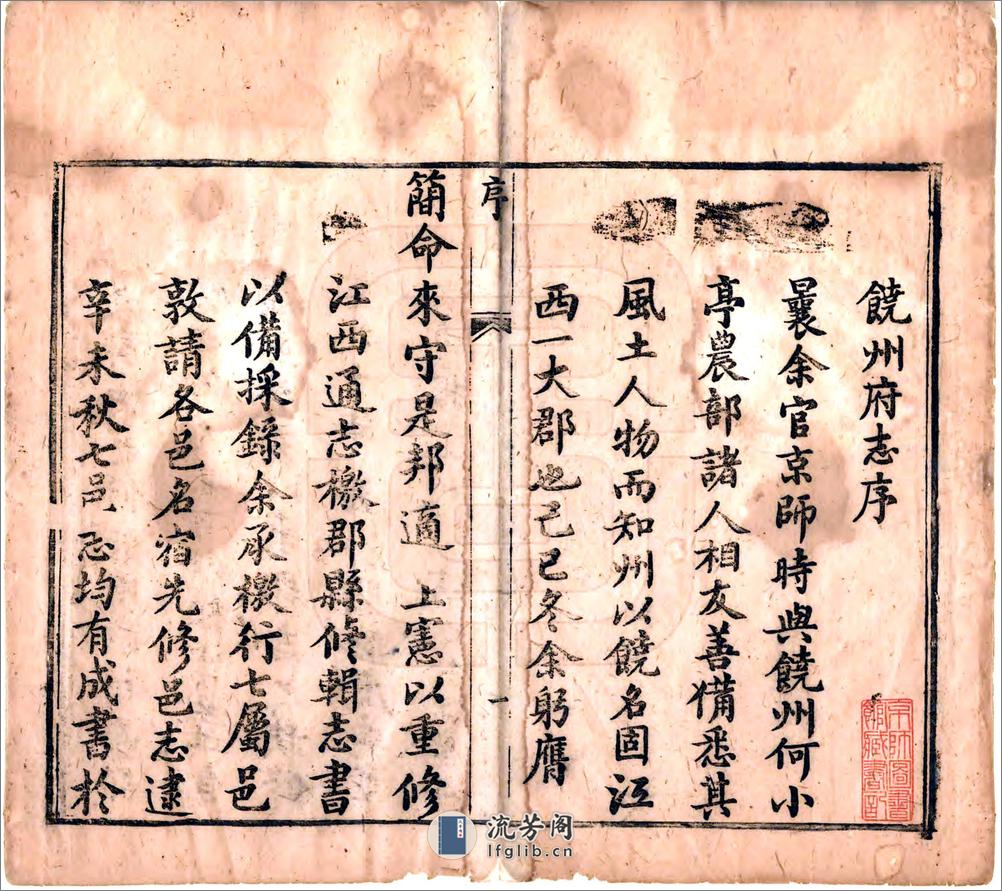 饒州府志序
曩余官京師時與饒州何小
亭農部諸人相友善備悉其
風土人物而知州以饒名固江
西一大郡也己巳冬余躬膺
序
一
簡命來守是邦適 上憲以重修
江西通志檄郡縣修輯志書
以備採錄余承檄行七屬邑
敦請各邑名宿先修邑志逮
辛未秋七邑志均有成書於
京師圖書館藏書記
流芳阁
lfglib.cn